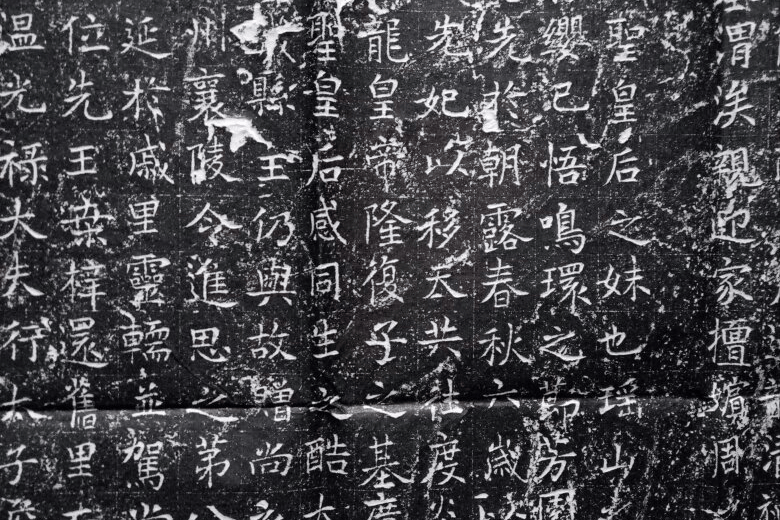 渭涘親迎家擅嬪周
聖皇后之妹也瑶山
纓已悟鳴環之節方
先於朝露春秋六歲
先妃以移天共往度
龍皇帝隆復子之基
聖皇后感同生之酷
縣王仍與故贈尚
州襄陵令進思之第八
延於戚里靈轜並駕
位先王桒梓還舊里
温光禄大夫行太子